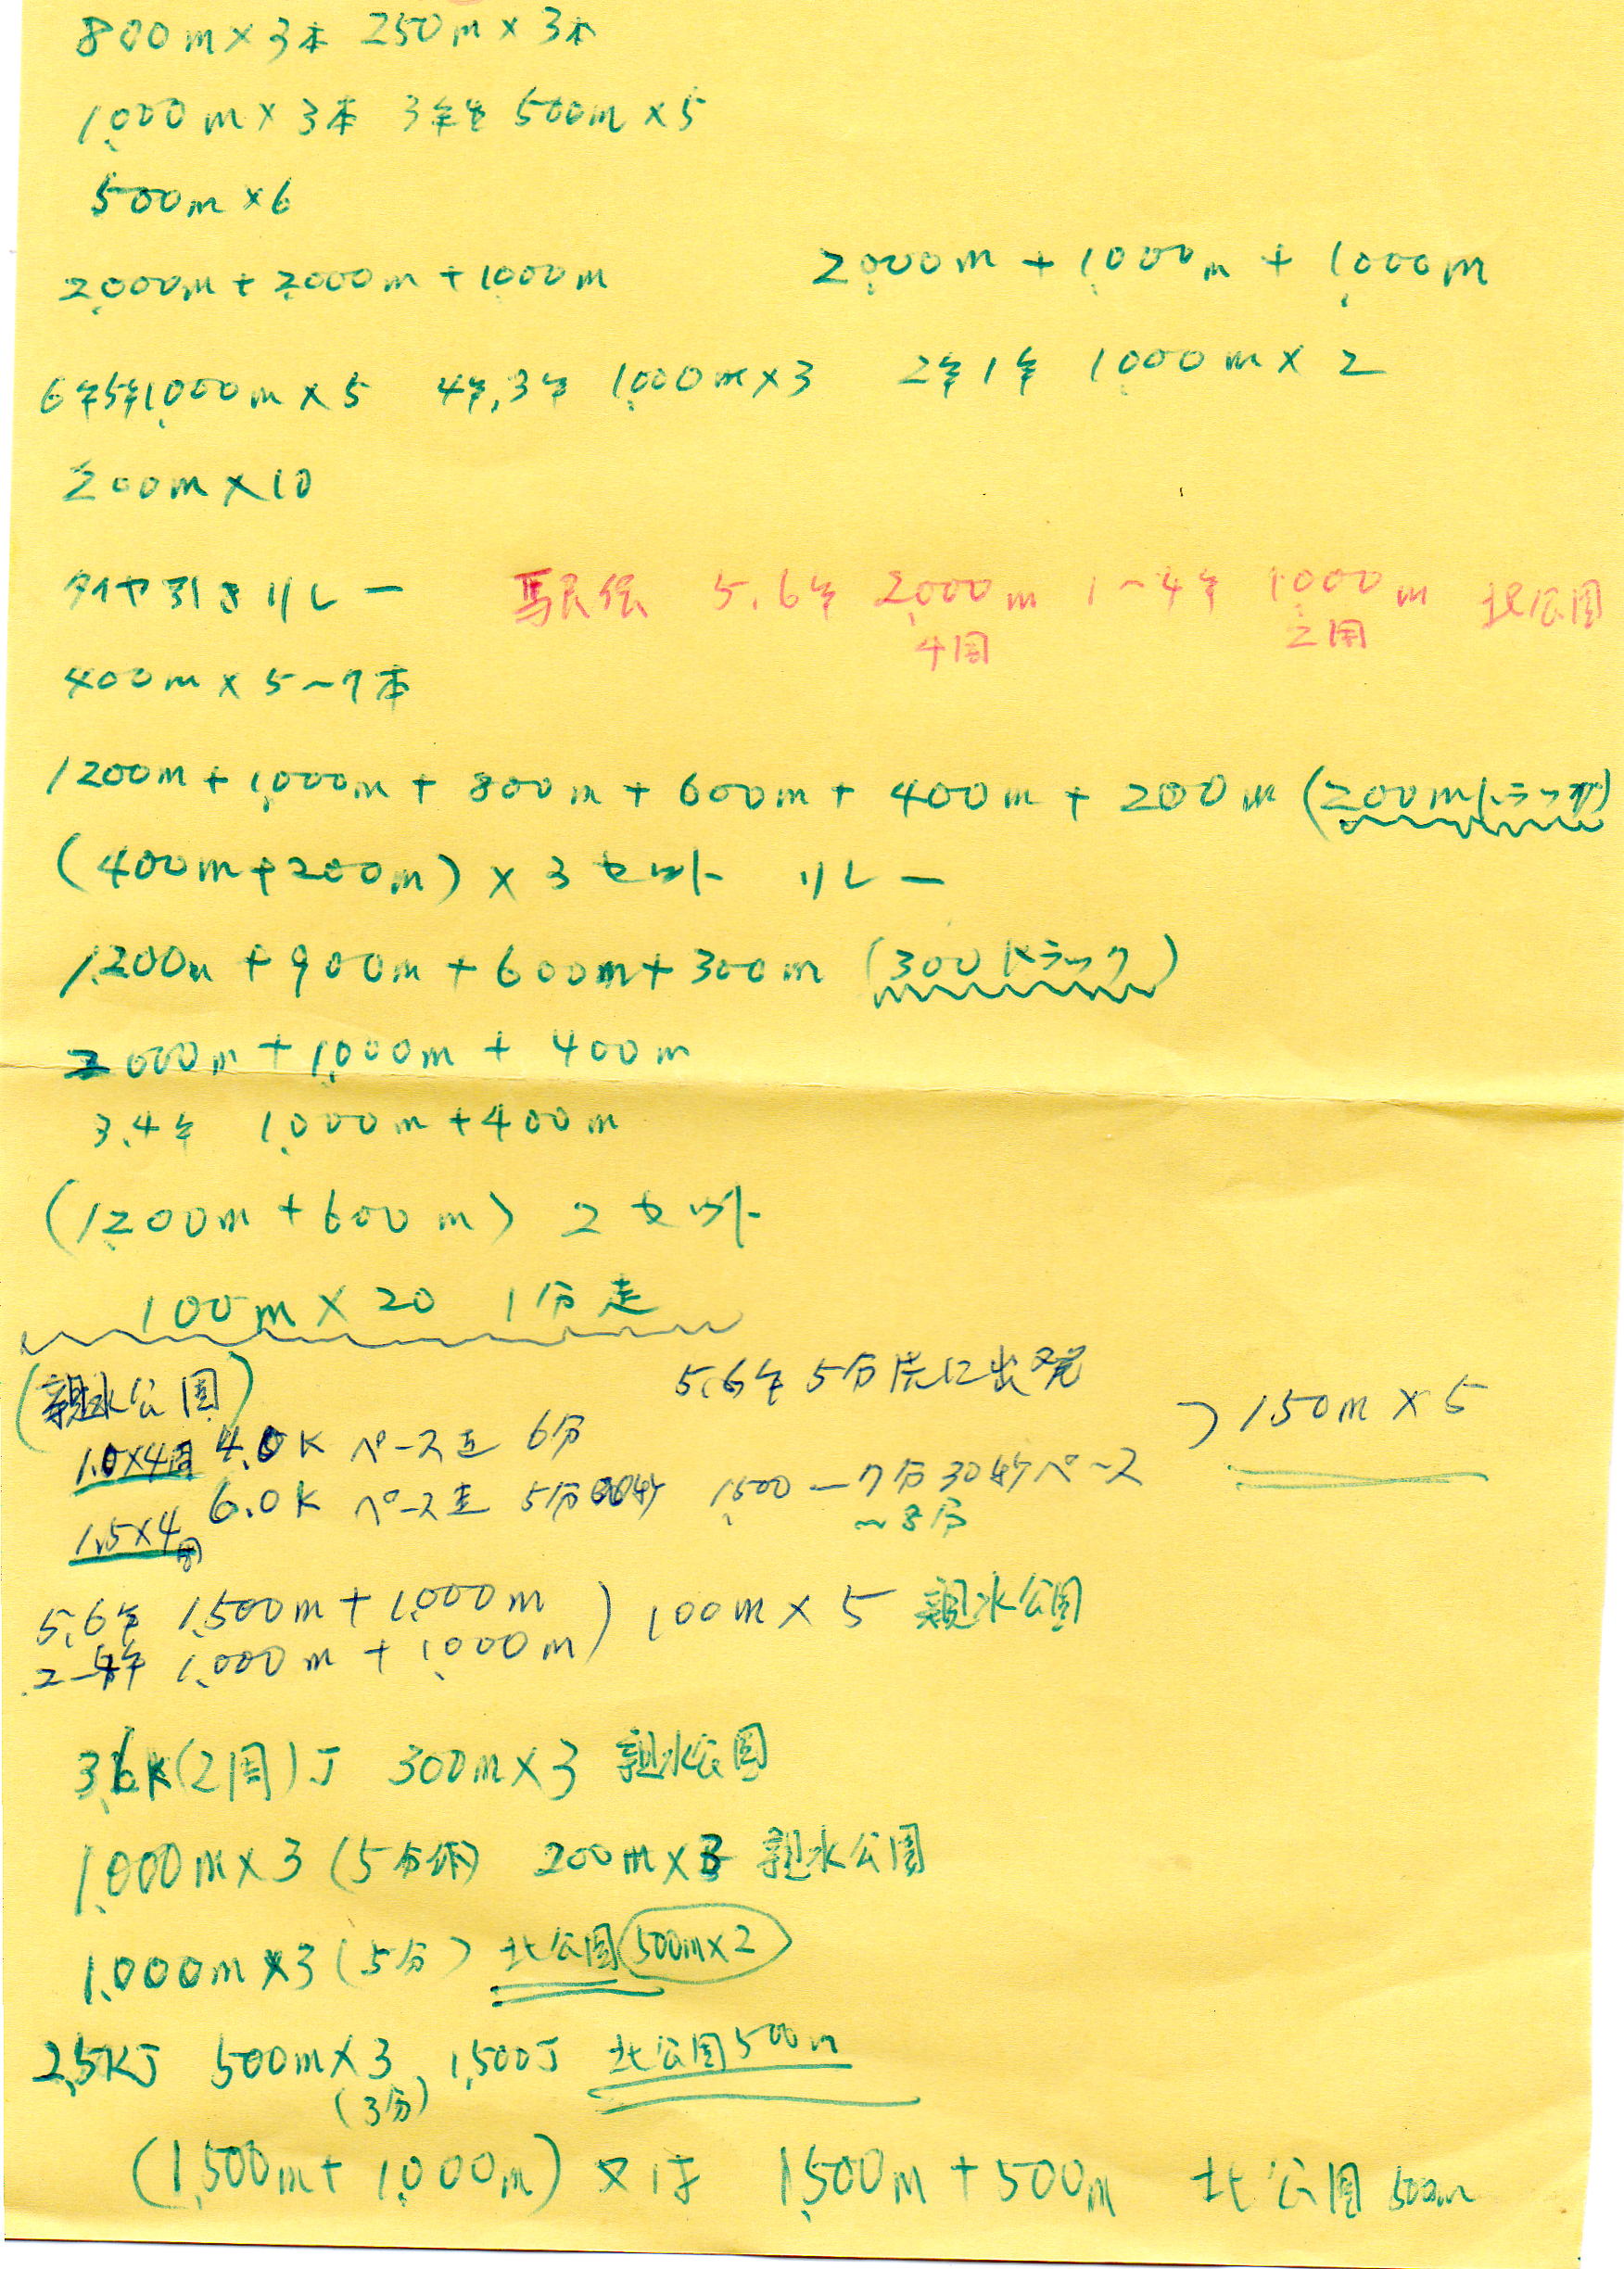 800m×3本 250m×3本
1,000m×3本 3年生 500m×5
500m×6
2,000m+2,000m+1000m 2,000m+1,000m+1,000m
6年5年1,000m×5 4年,3年 1,000m×3 2年1年 1,000m×2
200m×10
タイヤ引きリレー 駅伝 5.6年 2,000m 1~4年 1,000m 北公園
4周 2周
400m×5~7本
1200m+1,000m+800m+600m+400m+200m(200mトラック)
(400m+200m)×3セット リレー
1,200m+900m+600m+300m(300トラック)
2000m+1,000m+400m
3.4年 1,000m+400m
(1,200m+600m) 2セット
100m×20 1分走
(親水公園) 5.6年 5分先に出発
1.0×4周 4.0K ペース走 6分 150m×5
1.5×4周 6.0K ペース走 5分 1,500-7分30秒ペース
~8分
5.6年 1,500m+1,000m) 100m×5 親水公園
2-4年 1,000m+1,000m
3.6K(2周)J 300m×3 親水公園
1,000m×3(5分 200m×3 親水公園
1,000m×3(5分) 北公園 500m×2
2.5KJ 500m×3 1,500J 北公園500m
(3分)
(1,500m+1,000m) 又は 1,500m+500m 北公園 500m